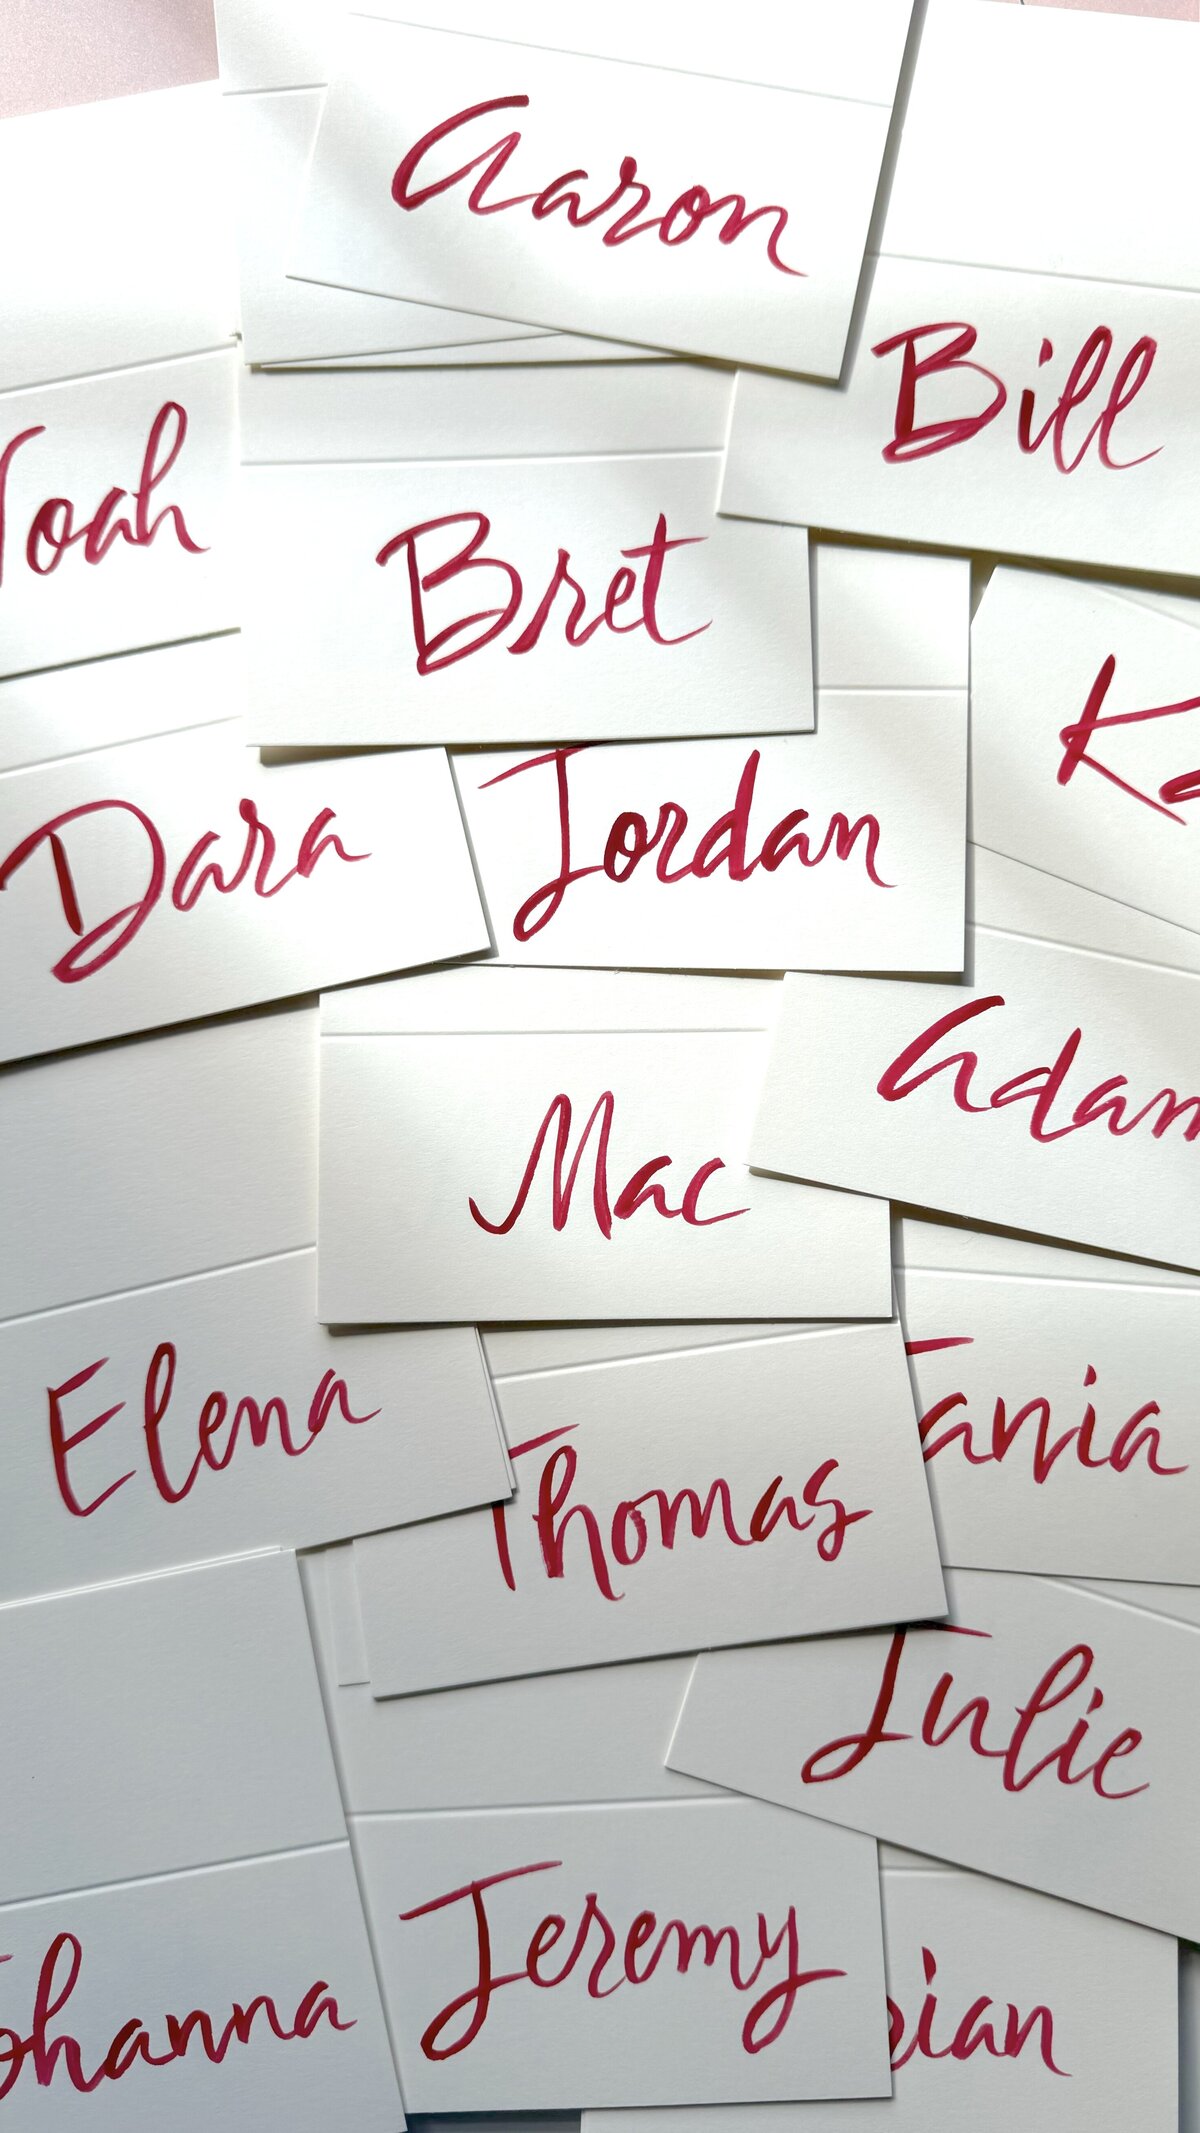 Aaron
Bill
Noah
Bret
Dara
Jordan
Adam
Mac
Elena
Thomas
Tania
Julie
Johanna
Jeremy